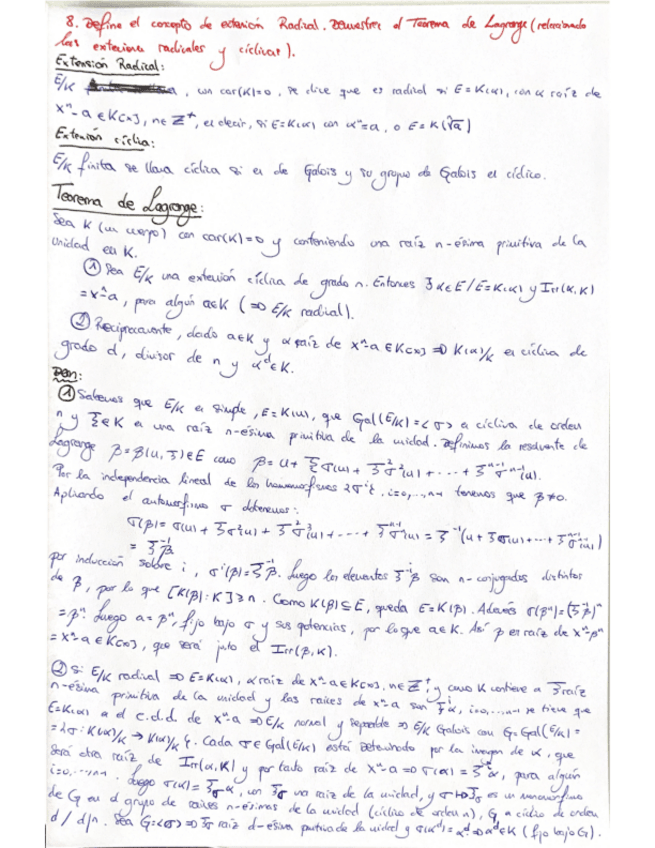 8. Define el concepto de extensión Radical. Demuestre el Teorema de Lagrange (relacionado
las extensiones radicales y cíclicas).
Extensión Radical:
E/K , con car(K)=0, se dice que es radical si E=K(α), con α raíz de
xⁿ-a ∈ K[x], n∈Z⁺, es decir, si E=K(α) con αⁿ=a, o E=K(ⁿ√a)
Extensión cíclica:
E/K finita se llama cíclica si es de Galois y su grupo de Galois es cíclico.
Teorema de Lagrange:
Sea K (un cuerpo) con car(K)=0 y conteniendo una raíz n-ésima primitiva de la
unidad en K.
① Sea E/K una extensión cíclica de grado n. Entonces ∃ α∈E / E=K(α) y Irr(α,K)
=xⁿ-a, para algún a∈K (⇒ E/K radical).
② Recíprocamente, dado a∈K y α raíz de xⁿ-a ∈ K[x] ⇒ K(α)/K es cíclica de
grado d, divisor de n y α^d∈K.
Dem:
① Sabemos que E/K es simple, E=K(u), que Gal(E/K)=<σ> es cíclica de orden
n y ξ∈K es una raíz n-ésima primitiva de la unidad. Definimos la resolvente de
Lagrange β=β(u,ξ)∈E como β=u+ξσ(u)+ξ²σ²(u)+···+ξⁿ⁻¹σⁿ⁻¹(u).
Por la independencia lineal de los homomorfismos {σⁱ}, i=0,...,n-1 tenemos que β≠0.
Aplicando el automorfismo σ obtenemos:
σ(β)=σ(u)+ξσ²(u)+ξ²σ³(u)+···+ξⁿ⁻¹σⁿ(u)=ξ⁻¹(u+ξσ(u)+···+ξⁿ⁻¹σⁿ⁻¹(u))
=ξ⁻¹β
por inducción sobre i, σⁱ(β)=ξ⁻ⁱβ. Luego los elementos ξ⁻ⁱβ son n-conjugados distintos
de β, por lo que [K(β):K]≥n. Como K(β)⊆E, queda E=K(β). Además σ(βⁿ)=(ξ⁻¹β)ⁿ
=βⁿ. Luego a=βⁿ, fijo bajo σ y sus potencias, por lo que a∈K. Así β es raíz de xⁿ-βⁿ
=xⁿ-a ∈ K[x], que será justo el Irr(β,K).
② Si E/K radical ⇒ E=K(α), α raíz de xⁿ-a∈K[x], n∈Z⁺, y como K contiene a ξ raíz
n-ésima primitiva de la unidad y las raíces de xⁿ-a son ξⁱα, i=0,...,n-1 se tiene que
E=K(α) es el c.d.d. de xⁿ-a ⇒ E/K normal y separable ⇒ E/K Galois con G=Gal(E/K)=
={σ: K(α)/K → K(α)/K}. Cada σ∈Gal(E/K) está determinado por la imagen de α, que
será otra raíz de Irr(α,K) y por tanto raíz de xⁿ-a ⇒ σ(α)=ξⁱα, para algún
i=0,...,n-1. Luego σ(α)=ξσα, con ξσ una raíz de la unidad, y σ↦ξσ es un monomorfismo
de G en el grupo de raíces n-ésimas de la unidad (cíclico de orden n), G es cíclico de orden
d / d|n. Sea G=<σ> ⇒ ξσ raíz d-ésima primitiva de la unidad y σ(α^d)=α^d ⇒ α^d∈K (fijo bajo G).